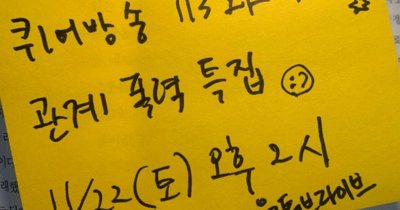 퀴어방송 113
관계 폭력 특집
11/22(토) 오후 2시
유튜브라이브